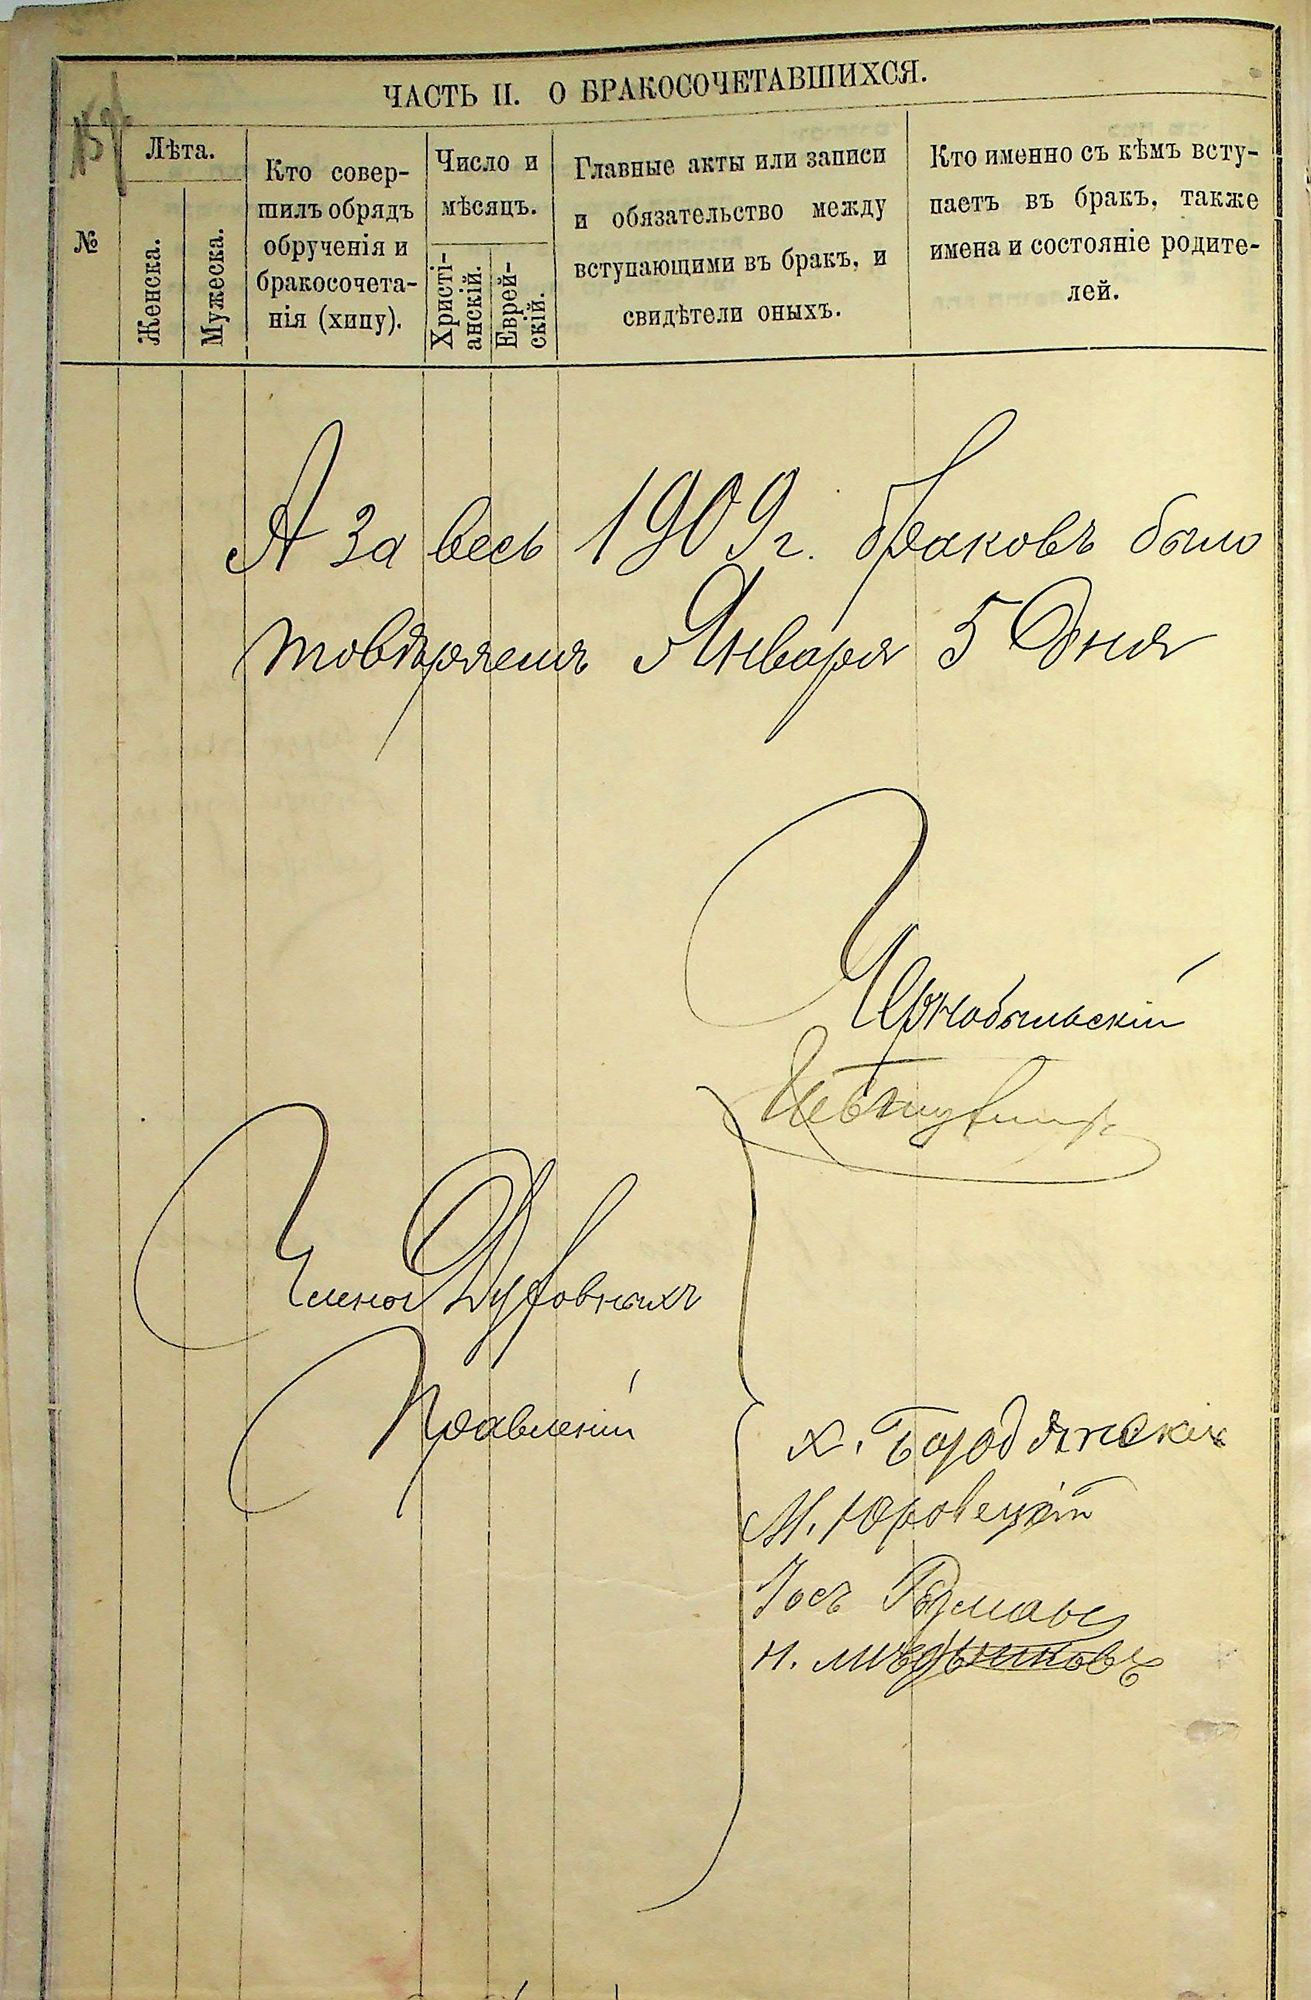 ЧАСТЬ II. О БРАКОСОЧЕТАВШИХСЯ.
№
Лѣта.
Женска.
Мужеска.
Кто совер-
шилъ обрядъ
обрученія и
бракосочета-
нія (хипу).
Число и
мѣсяцъ.
Христі-
анскій.
Еврей-
скій.
Главные акты или записи
и обязательство между
вступающими въ бракъ, и
свидѣтели оныхъ.
Кто именно съ кѣмъ всту-
паетъ въ бракъ, также
имена и состояніе родите-
лей.
А за весь 1909 г. браковъ было
Января 5 Дня
Чернобыльскій
Члены Духовныхъ
Правленій
Х. Бородянскій
М. Юровецкій
Іос
Н.